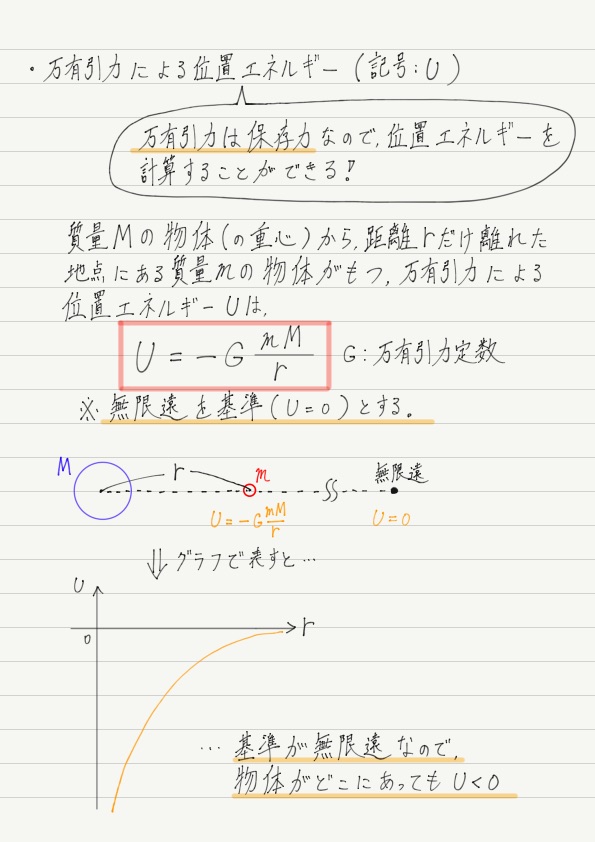 ・万有引力による位置エネルギー（記号：U）
万有引力は保存力なので，位置エネルギーを
計算することができる！
質量Mの物体（の重心）から，距離rだけ離れた
地点にある質量mの物体がもつ，万有引力による
位置エネルギーUは，
U = −G mM/r　G：万有引力定数
※無限遠を基準（U=0）とする。
M r m 無限遠
U=−G mM/r U=0
⇓ グラフで表すと…
U
0 r
… 基準が無限遠なので，
物体がどこにあってもU<0